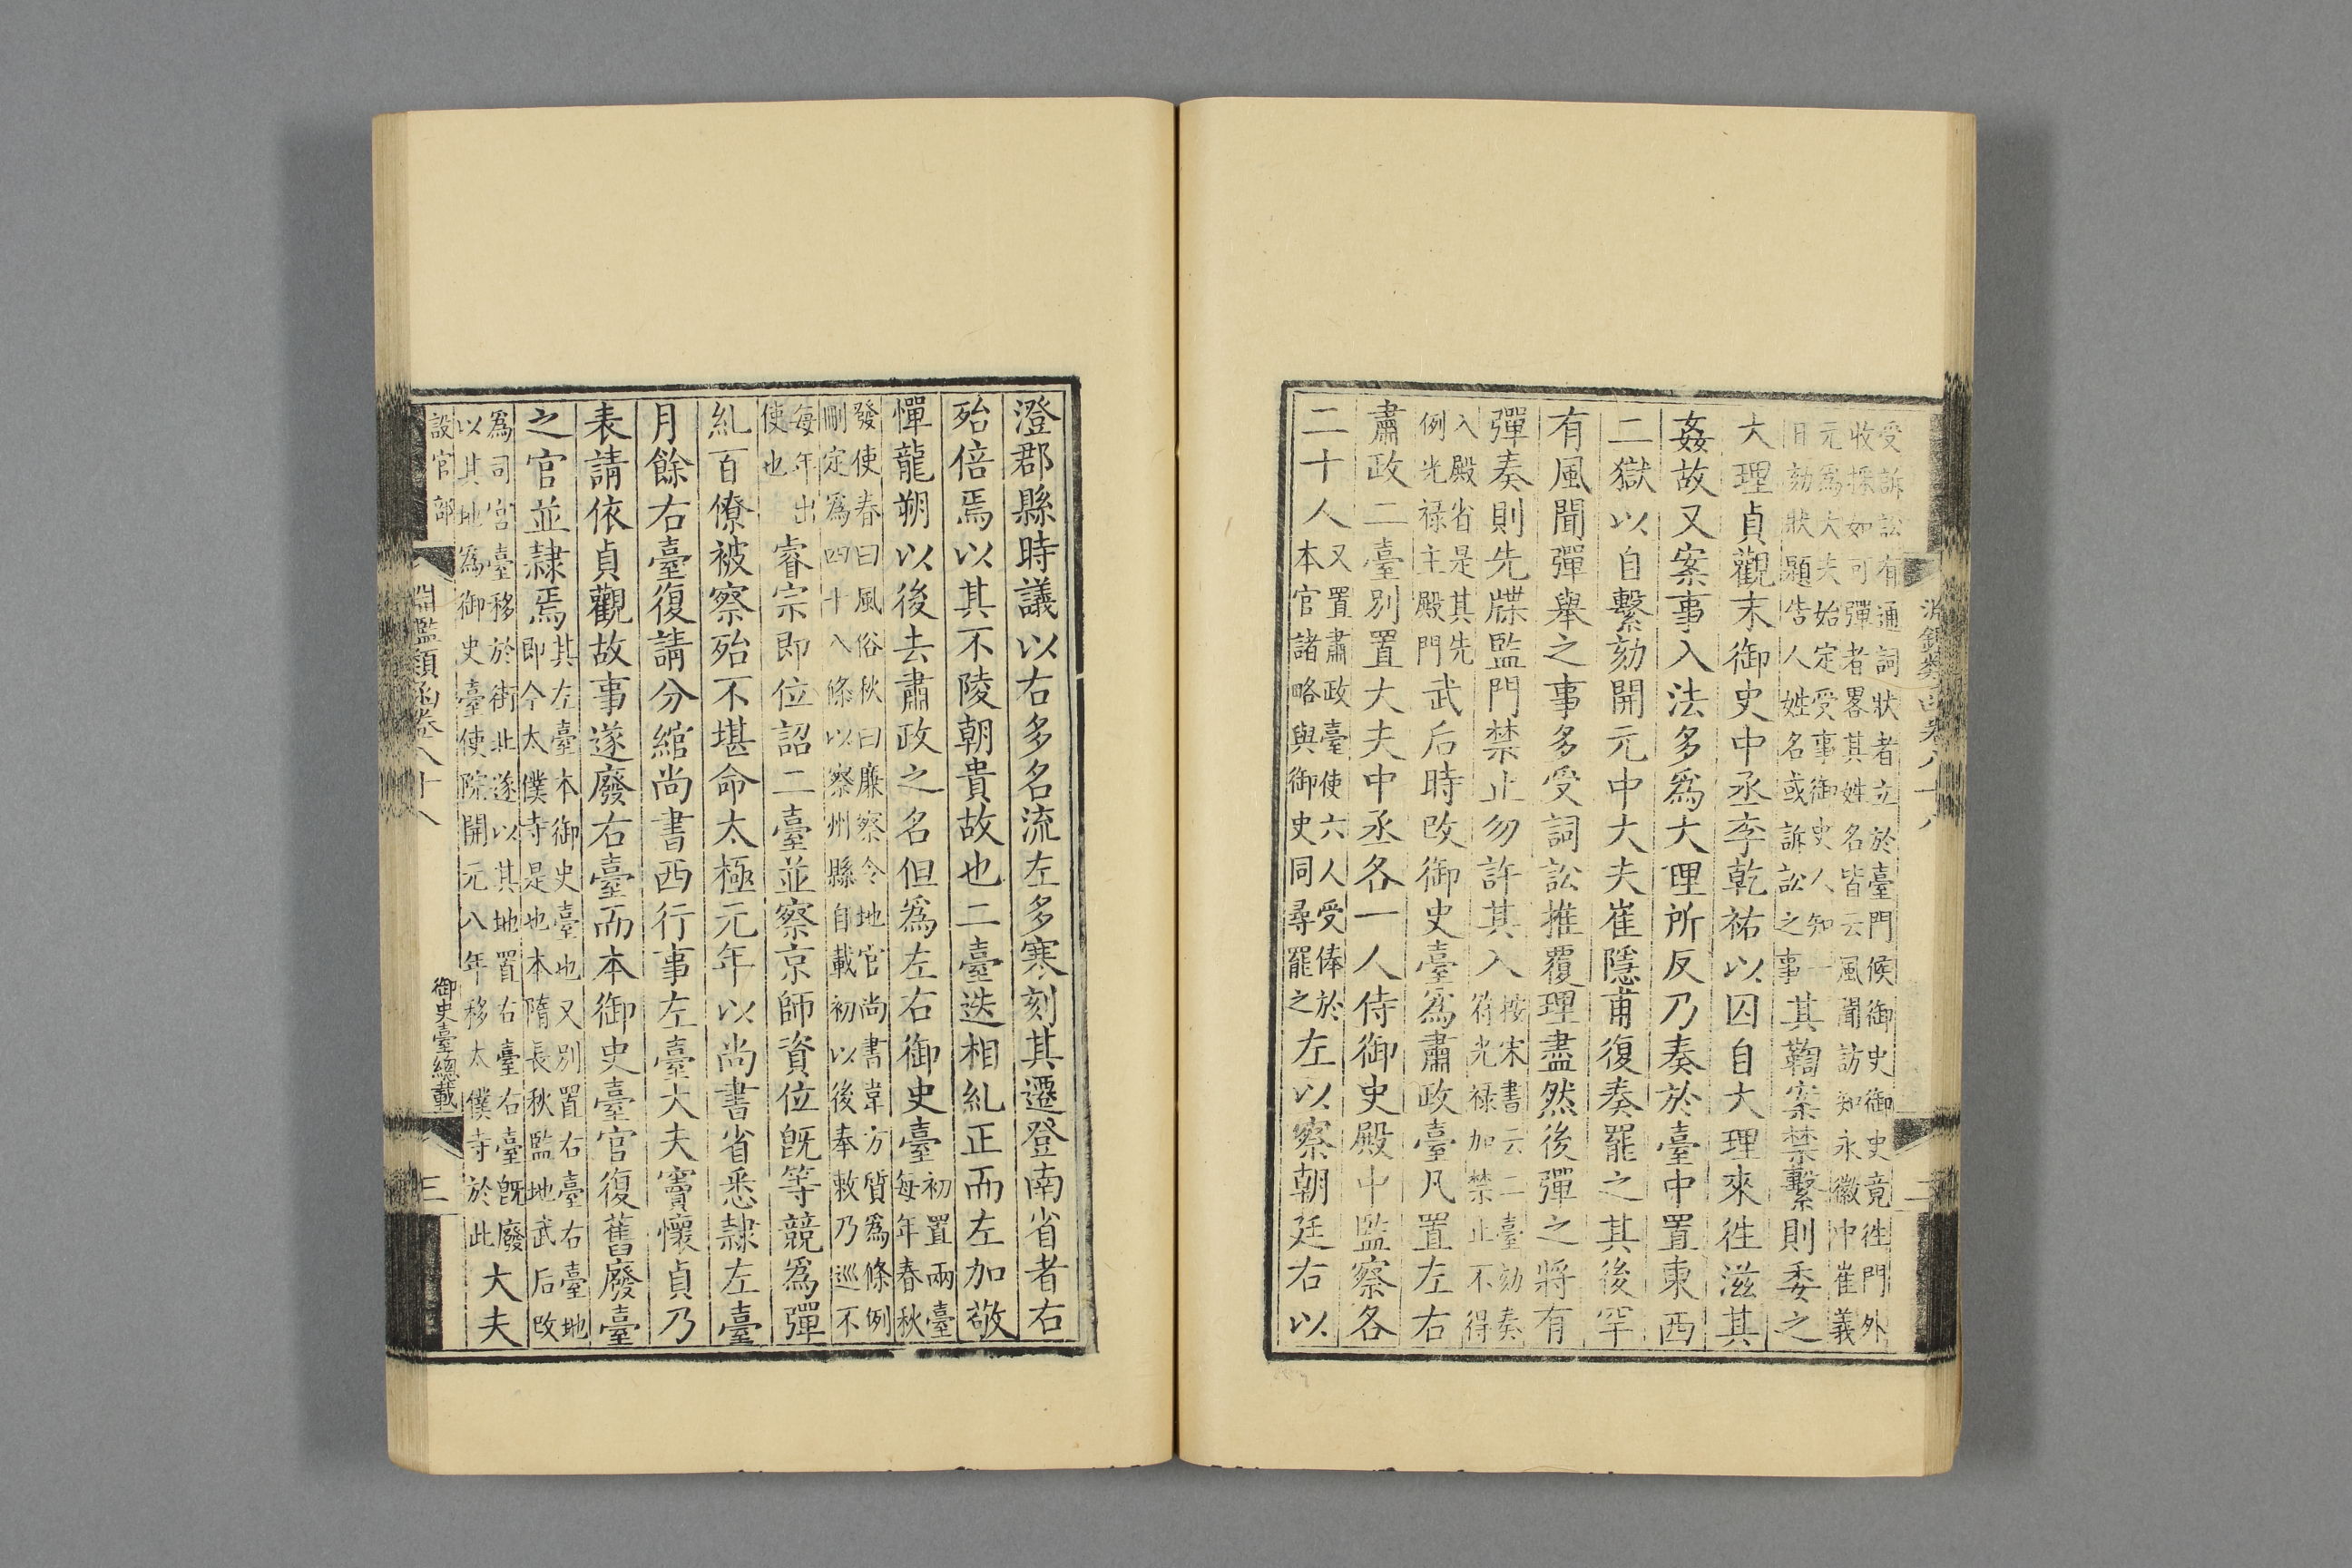 淵鑑類函卷八十八
二
受訴訟有通詞狀者立於臺門候御史御史竟徃門外
收採如可彈者畧其姓名皆云風聞訪知永徽中崔義
元爲大夫始定受事御史人知一
日劾狀題告人姓名或訴訟之事其鞫案禁繫則委之
大理貞觀末御史中丞李乾祐以囚自大理來徃滋其
姦故又案事入法多爲大理所反乃奏於臺中置東西
二獄以自繫劾開元中大夫崔隱甫復奏罷之其後罕
有風聞彈舉之事多受詞訟推覆理盡然後彈之將有
彈奏則先牒監門禁止勿許其入按宋書云二臺劾奏
符光禄加禁止不得
入殿省是其先
例光禄主殿門武后時改御史臺爲肅政臺凡置左右
肅政二臺別置大夫中丞各一人侍御史殿中監察各
二十人又置肅政臺使六人受俸於
本官諸略與御史同尋罷之左以察朝廷右以
澄郡縣時議以右多名流左多寒刻其遷登南省者右
殆倍焉以其不陵朝貴故也二臺迭相糺正而左加敬
憚龍朔以後去肅政之名但爲左右御史臺初置兩臺
每年春秋
發使春曰風俗秋曰廉察令地官尚書韋方質爲條例
刪定爲四十八條以察州縣自載初以後奉敕乃巡不
每年出
使也睿宗即位詔二臺並察京師資位旣等競爲彈
糺百僚被察殆不堪命太極元年以尚書省悉隷左臺
月餘右臺復請分綰尚書西行事左臺大夫竇懷貞乃
表請依貞觀故事遂廢右臺而本御史臺官復舊廢臺
之官並隷焉其左臺本御史臺也又別置右臺右臺地
即今太僕寺是也本隋長秋監地武后改
爲司宮臺移於街北遂以其地置右臺右臺旣廢
以其地爲御史臺使院開元八年移太僕寺於此大夫
設官部
淵鑑類函卷八十八
御史臺總載
三